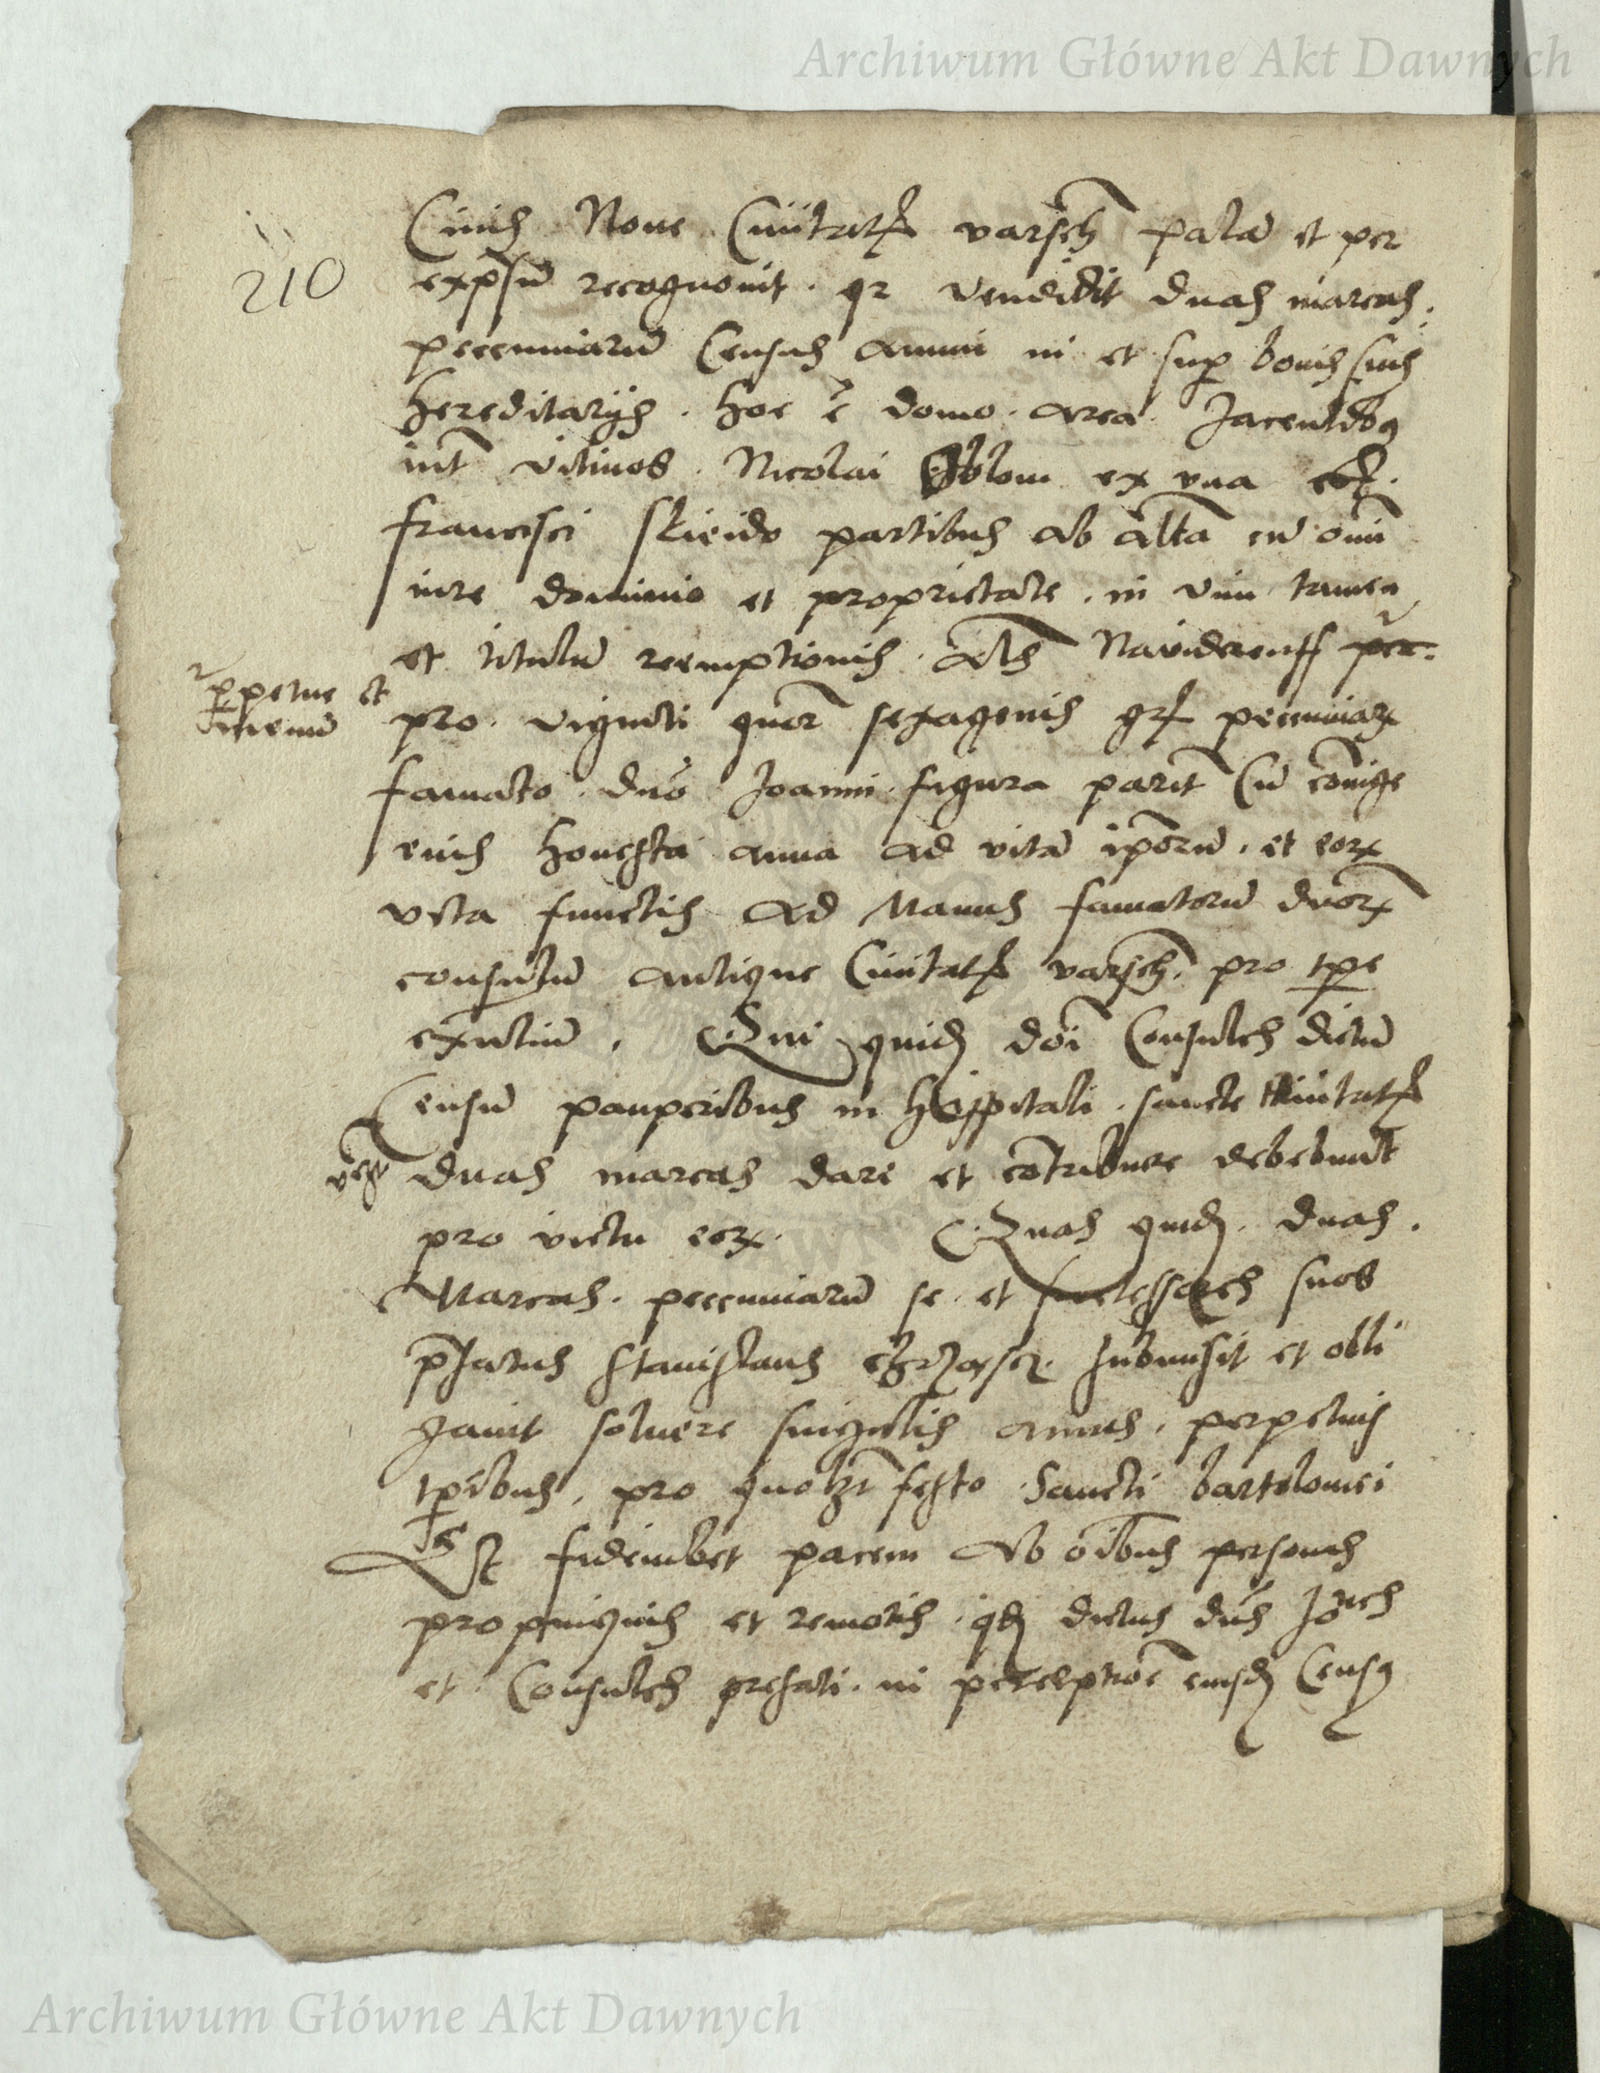 Archiwum Główne Akt Dawnych
210
Civis Nove Civitatis varsch palam et per
expssum recognovit. qr vendidit duas marcas
peccuniarum Census annui in et sup bonis suis
hereditarijs. hoc ē domo. area. Jacentibus
int vicinos. Nicolai ex una et
francisci partibus ab altera cum omni
iure dominio et proprietate. in vim tamen
et titulum reemptionis. als per
perpetue et
pro. viginti quatuor sexagenis grs pecuniar
famato. duo Joanni. figura parit Cum coniuge
eius honesta anna ad vitam iporum. et eorum
vita functis ad Manus famatorum dnorum
consulum antique Civitatis varsch. pro tpe
existentium. Qui quidem doi Consules dictum
Censum pauperibus in hospitali. sancte trinitatis
duas marcas dare et contribuere debebunt
pro victu eorum. Quas quidem. duas.
Marcas. peccuniarum se et successores suos
pfatus stanislaus subiunxit et obli
gavit solvere singulis annis. perpetuis
tpibus. pro quolzt festo. Sancti bartolomei
Et fideiubet pacem ab oibus personis
propinquis et remotis. qd dictus dns Joēs
et Consules prefati. in perceptione eiusdem Census
Archiwum Główne Akt Dawnych